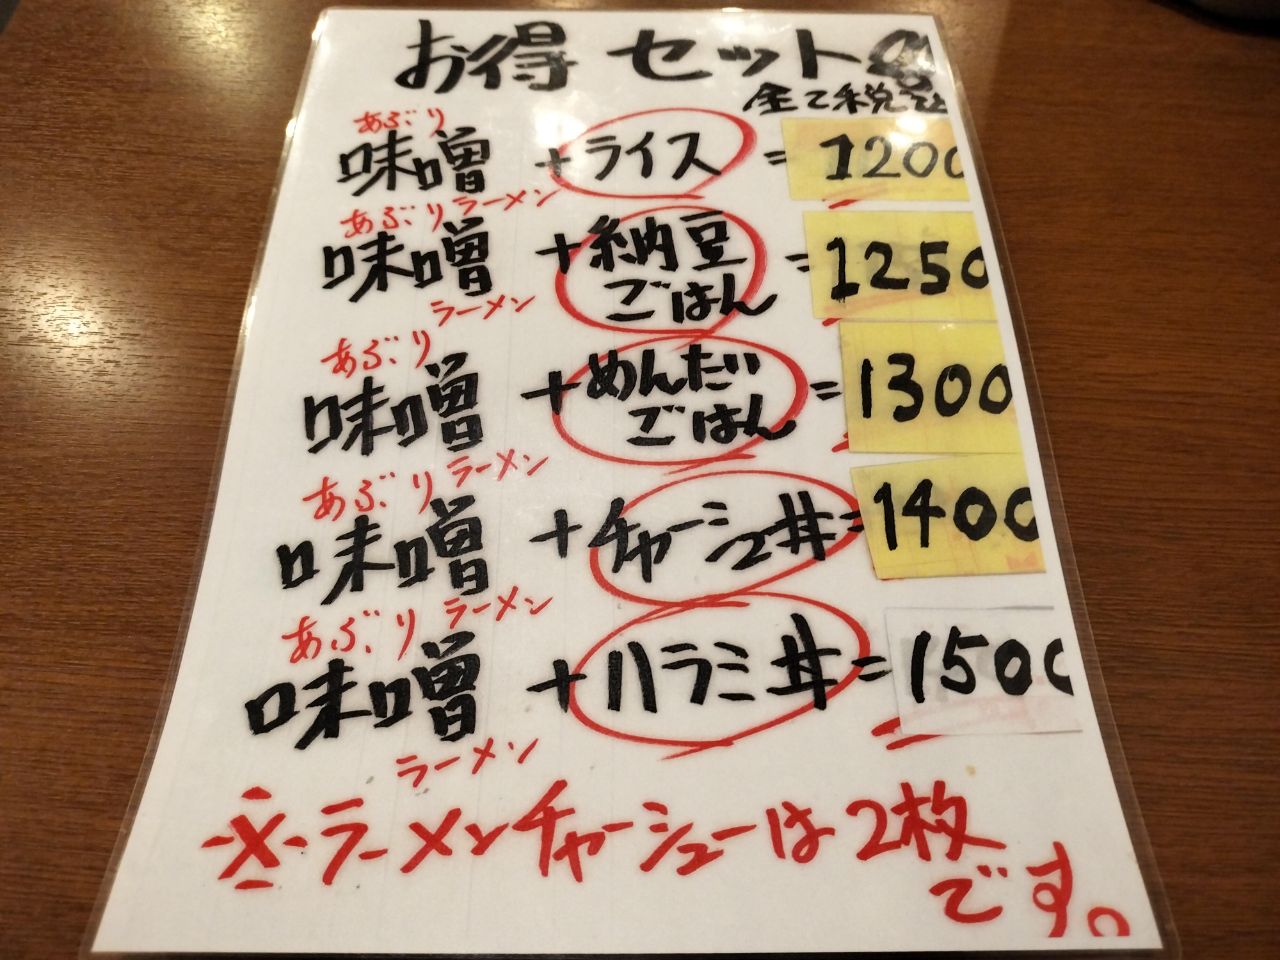 お得セット
全て税込
あぶり
味噌 + ライス = 1200
ラーメン
あぶり
味噌 + 納豆ごはん = 1250
ラーメン
あぶり
味噌 + めんたいごはん = 1300
ラーメン
あぶり
味噌 + チャーシュー丼 = 1400
ラーメン
あぶり
味噌 + ハラミ丼 = 1500
ラーメン
※ラーメンチャーシューは2枚
です。